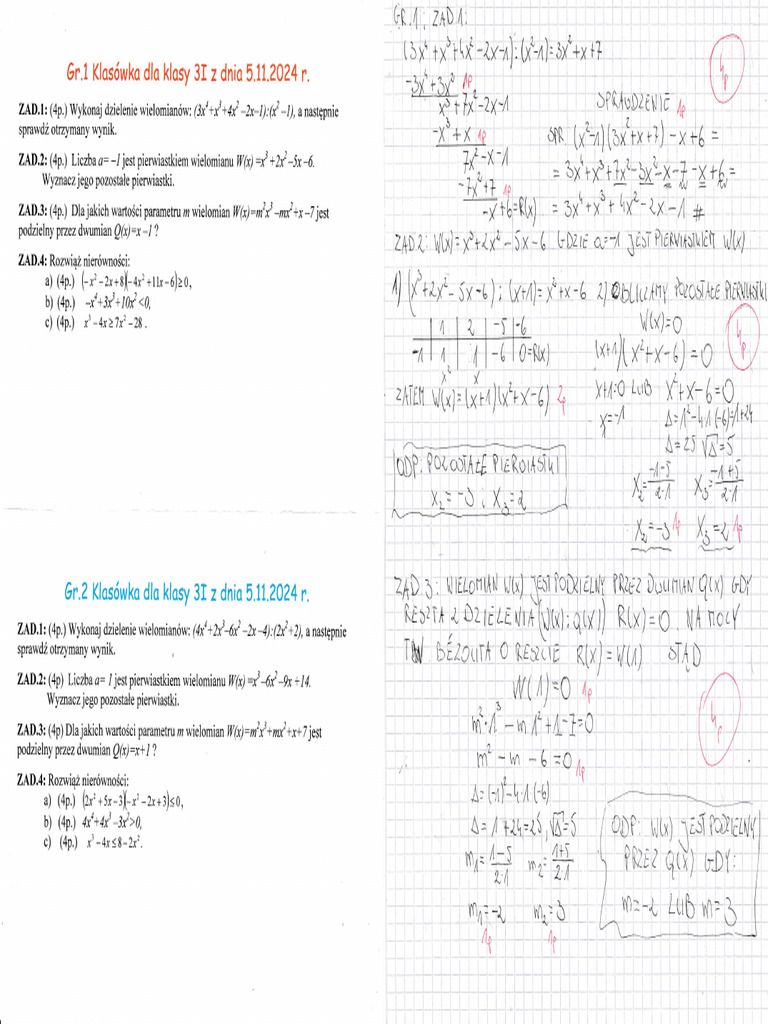 Gr.1 Klasówka dla klasy 3I z dnia 5.11.2024 r.
ZAD.1: (4p.) Wykonaj dzielenie wielomianów: (3x⁴+x³+4x² –2x–1):(x² –1), a następnie
sprawdź otrzymany wynik.
ZAD.2: (4p.) Liczba a= –1 jest pierwiastkiem wielomianu W(x) =x³ +2x² –5x –6.
Wyznacz jego pozostałe pierwiastki.
ZAD.3: (4p.) Dla jakich wartości parametru m wielomian W(x)=m²x³ –mx²+x –7 jest
podzielny przez dwumian Q(x)=x –1 ?
ZAD.4: Rozwiąż nierówności:
a) (4p.) (–x² –2x+8)(–4x² +11x–6)≥0 ,
b) (4p.) –x⁴+3x³+10x² <0,
c) (4p.) x³ –4x ≥ 7x² –28 .
Gr.2 Klasówka dla klasy 3I z dnia 5.11.2024 r.
ZAD.1: (4p.) Wykonaj dzielenie wielomianów: (4x⁴+2x³–6x² –2x –4):(2x²+2), a następnie
sprawdź otrzymany wynik.
ZAD.2: (4p) Liczba a= 1 jest pierwiastkiem wielomianu W(x) =x³–6x² –9x +14.
Wyznacz jego pozostałe pierwiastki.
ZAD.3: (4p) Dla jakich wartości parametru m wielomian W(x)=m²x³+mx²+x+7 jest
podzielny przez dwumian Q(x)=x+1 ?
ZAD.4: Rozwiąż nierówności:
a) (4p.) (2x² +5x –3)(–x² –2x +3)≤0 ,
b) (4p.) 4x⁴+4x³ –3x²>0,
c) (4p.) x³ –4x ≤ 8–2x² .
GR.1; ZAD.1:
(3x⁴+x³+4x²-2x-1):(x²-1)=3x²+x+7
4p
-3x⁴+3x² 1p
x³+7x²-2x-1
-x³+x 1p
7x²-x-1
-7x²+7 1p
-x+6=R(x)
SPRAWDZENIE 1p
SPR (x²-1)(3x²+x+7)-x+6=
=3x⁴+x³+7x²-3x²-x-7-x+6=
=3x⁴+x³+4x²-2x-1 #
ZAD2: W(x)=x³+2x²-5x-6 GDZIE a=-1 JEST PIERWIASTKIEM W(x)
1) (x³+2x²-5x-6):(x+1)=x²+x-6
1 2 -5 -6
-1 1 1 -6 0=R(x)
x² x
ZATEM W(x)=(x+1)(x²+x-6) 2p
ODP: POZOSTAŁE PIERWIASTKI
x₂=-3; x₃=2
2) OBLICZAMY POZOSTAŁE PIERWIASTKI
W(x)=0
4p
(x+1)(x²+x-6)=0
x+1=0 LUB x²+x-6=0
x=-1 Δ=1²-4·1·(-6)=1+24
Δ=25 √Δ=5
x₂=(-1-5)/(2·1) x₃=(-1+5)/(2·1)
x₂=-3 1p x₃=2 1p
ZAD.3: WIELOMIAN W(x) JEST PODZIELNY PRZEZ DWUMIAN Q(x) GDY
RESZTA Z DZIELENIA (W(x):Q(x)) R(x)=0. NA MOCY
TW BÉZOUTA O RESZCIE R(x)=W(1) STĄD
W(1)=0 1p
4p
m²·1³-m·1²+1-7=0
m²-m-6=0 1p
Δ=(-1)²-4·1·(-6)
Δ=1+24=25, √Δ=5
m₁=(1-5)/(2·1) m₂=(1+5)/(2·1)
m₁=-2 m₂=3
1p 1p
ODP: W(x) JEST PODZIELNY
PRZEZ Q(x) GDY:
m=-2 LUB m=3